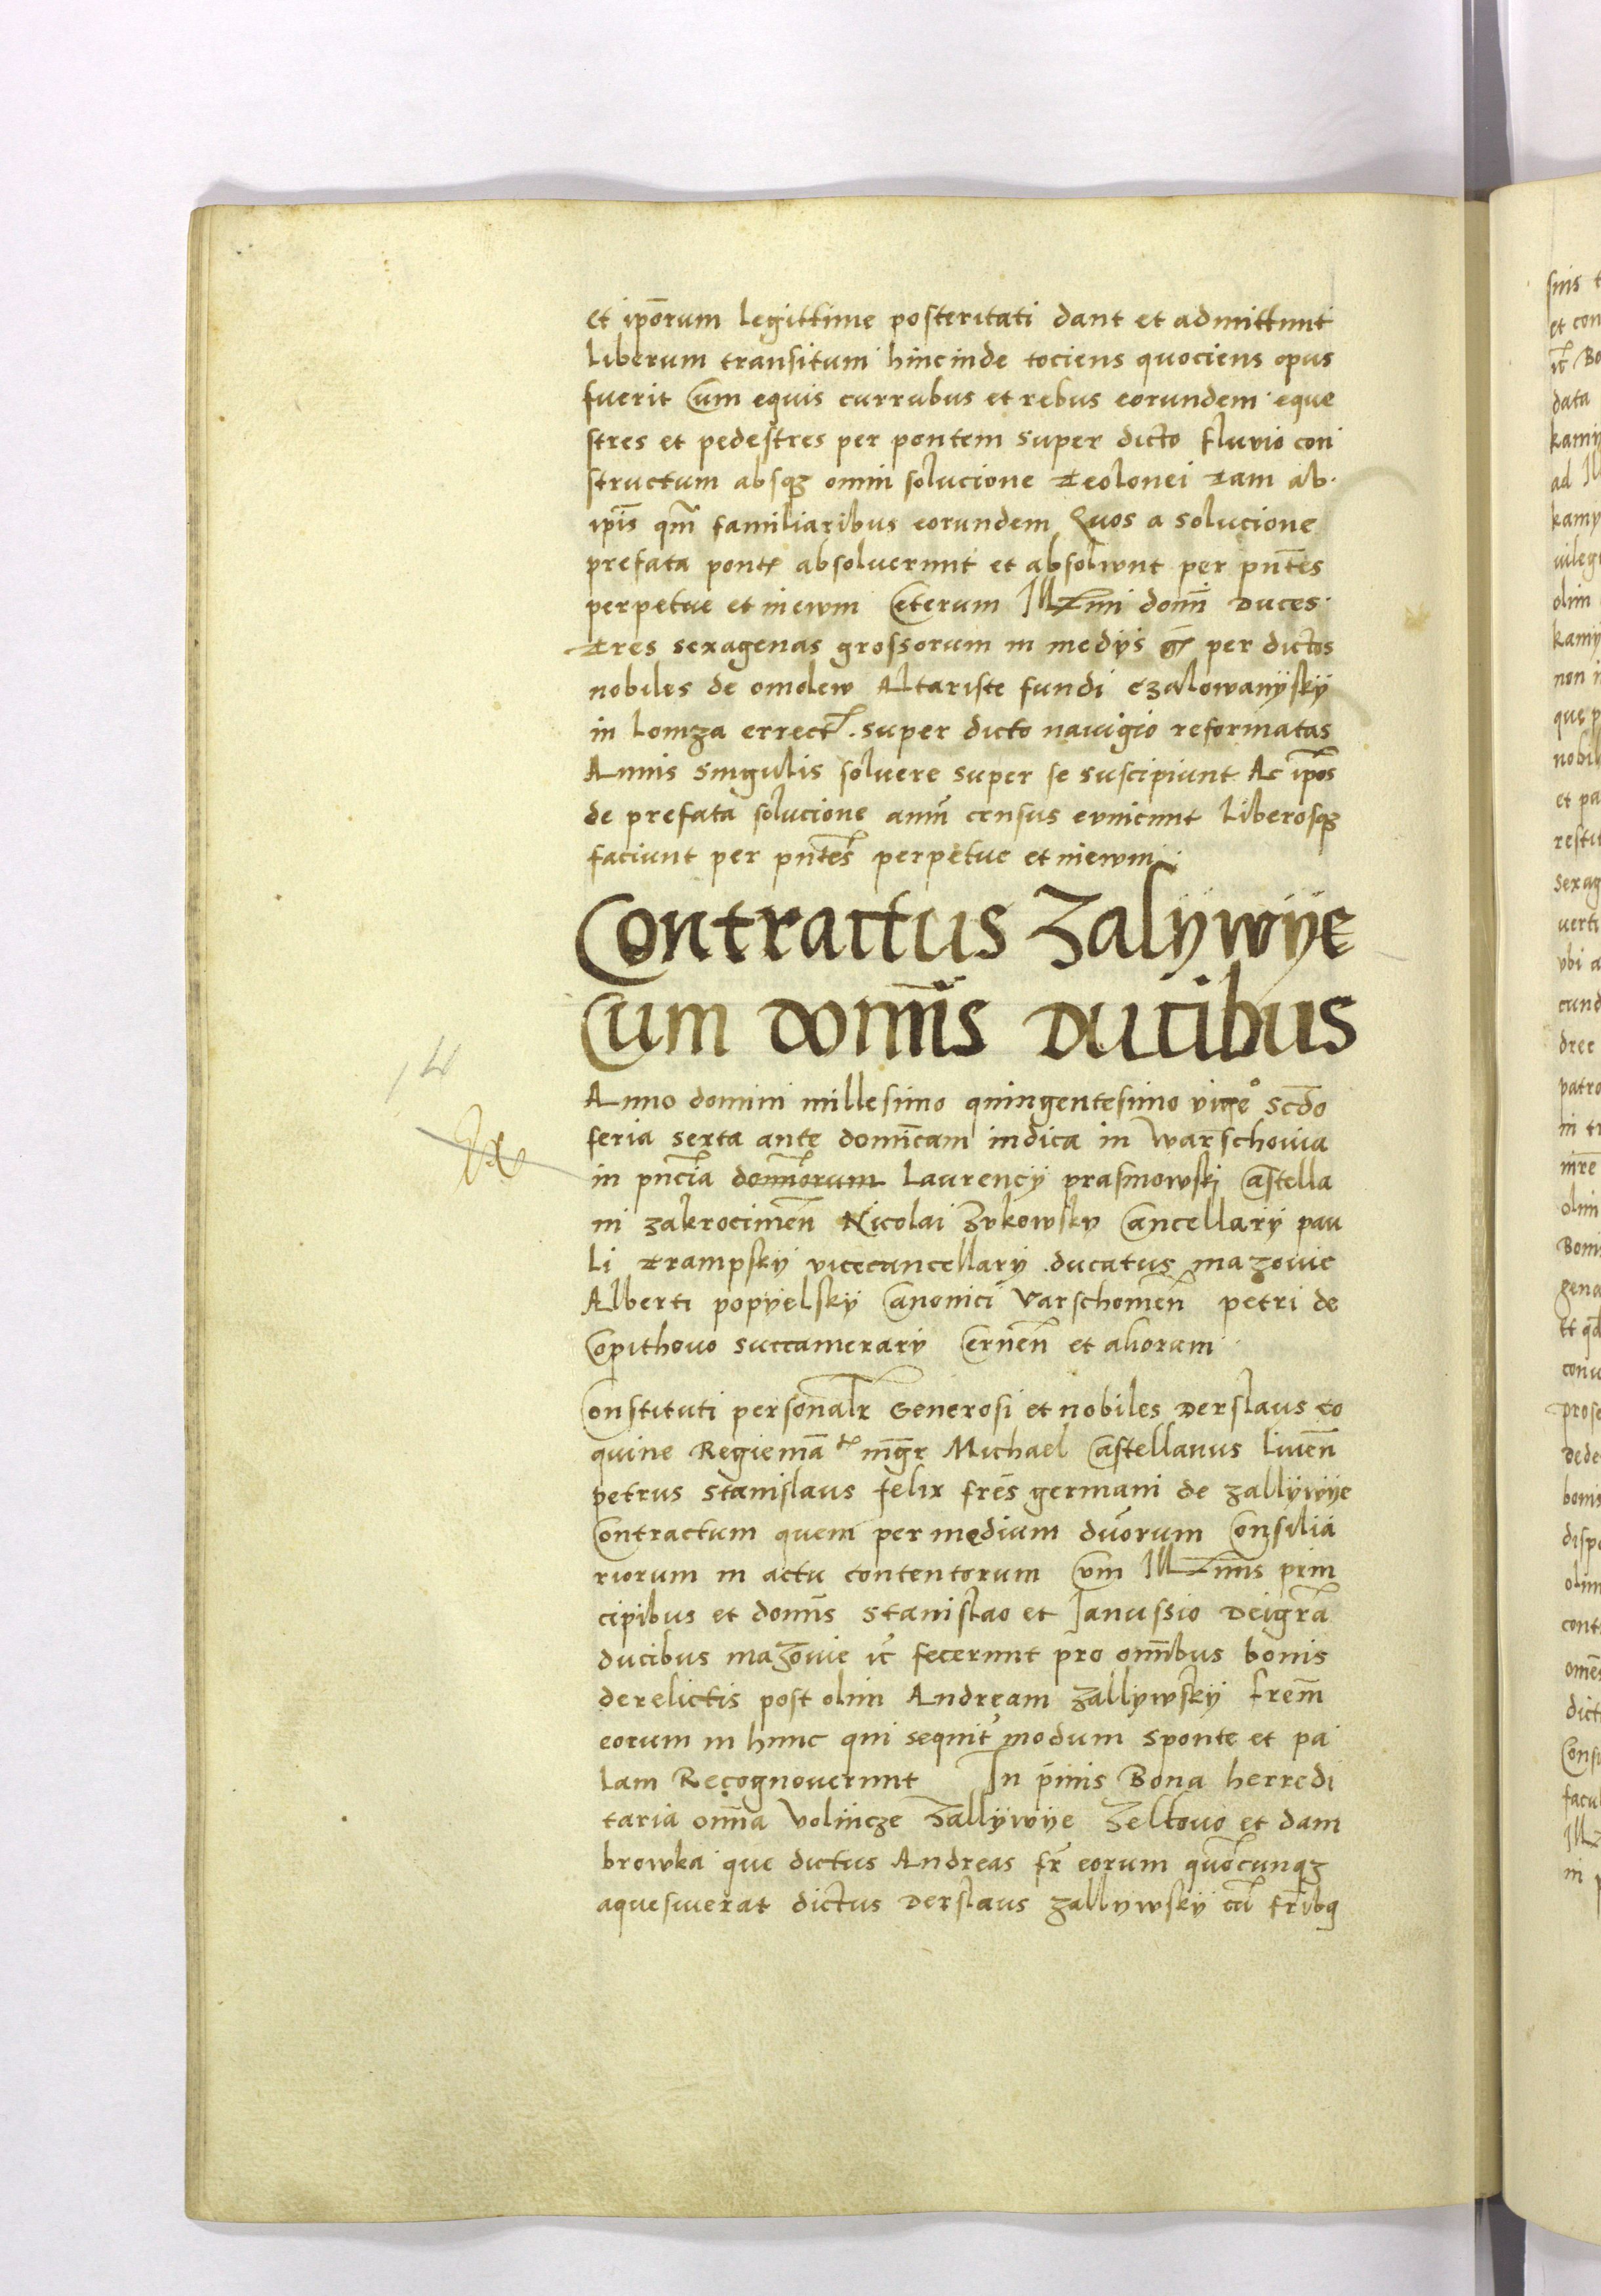 et ipōrum legittime posteritati dant et admittunt
liberum transitum hincinde tociens quociens opus
fuerit Cum equis curribus et rebus eorundem eque
stres et pedestres per pontem super dicto fluvio con
structum absqꝫ omni solucione teolonei tam ab
ipīs qm̄ familiaribus eorundem Quos a solucione
prefata pontꝭ absoluerunt et absolwnt per pn̄tes
perpetue et inewm Ceterum Illr̄mi domī duces
tres sexagenas grossorum in medijs gr̄ per dictos
nobiles de omolew Altariste fundi Czalowanÿskÿ
in Lomza errectꝭ super dicto nauigio reformatas
Annis singulis soluere super se suscipiunt Ac ipōs
de prefata solucione anuī census eviniunt liberosqꝫ
faciunt per pn̄tes perpetue et inewm
Contractus Zalÿwÿe
Cum domīs ducibus
14
Anno domini millesimo quingentesimo vigeº scd̄o
feria sexta ante domīcam indica in warschovia
in pn̄cia domīorum Laurencÿ prasmowski Castella
ni zakrocimen̄ Nicolai Zukowsky Cancellarÿ pau
li trampskÿ vicecancellarÿ ducatus mazovie
Alberti popÿelskÿ Canonici Varschouien̄ petri de
Copithovo succamerarÿ Cernen̄ et aliorum
Constituti personalr̄ Generosi et nobiles Derslaus co
quine Regiemā tꝭ mḡr Michael Castellanus liuen̄
petrus stanislaus felix frēs germani de zallÿwÿe
Contractum quem per medium duorum Consilia
riorum in actu contentorum Cum Illr̄imis prin
cipibus et domīs stanislao et Janussio Deigrā
ducibus mazovie ꝛc̄ fecerunt pro omībus bonis
derelictis post olim Andream zallÿwskÿ frem̄
eorum in hunc qui sequit̄ modum sponte et pa
lam Recognoverunt In p̄mis Bona herredi
taria om̄ia Volincze Zallÿwÿe Zeltovo et dam
browka que dictus Andreas fr̄ eorum quōcunqꝫ
aquesiuerat dictus Derslaus zallywskÿ cū fr̄ibꝫ